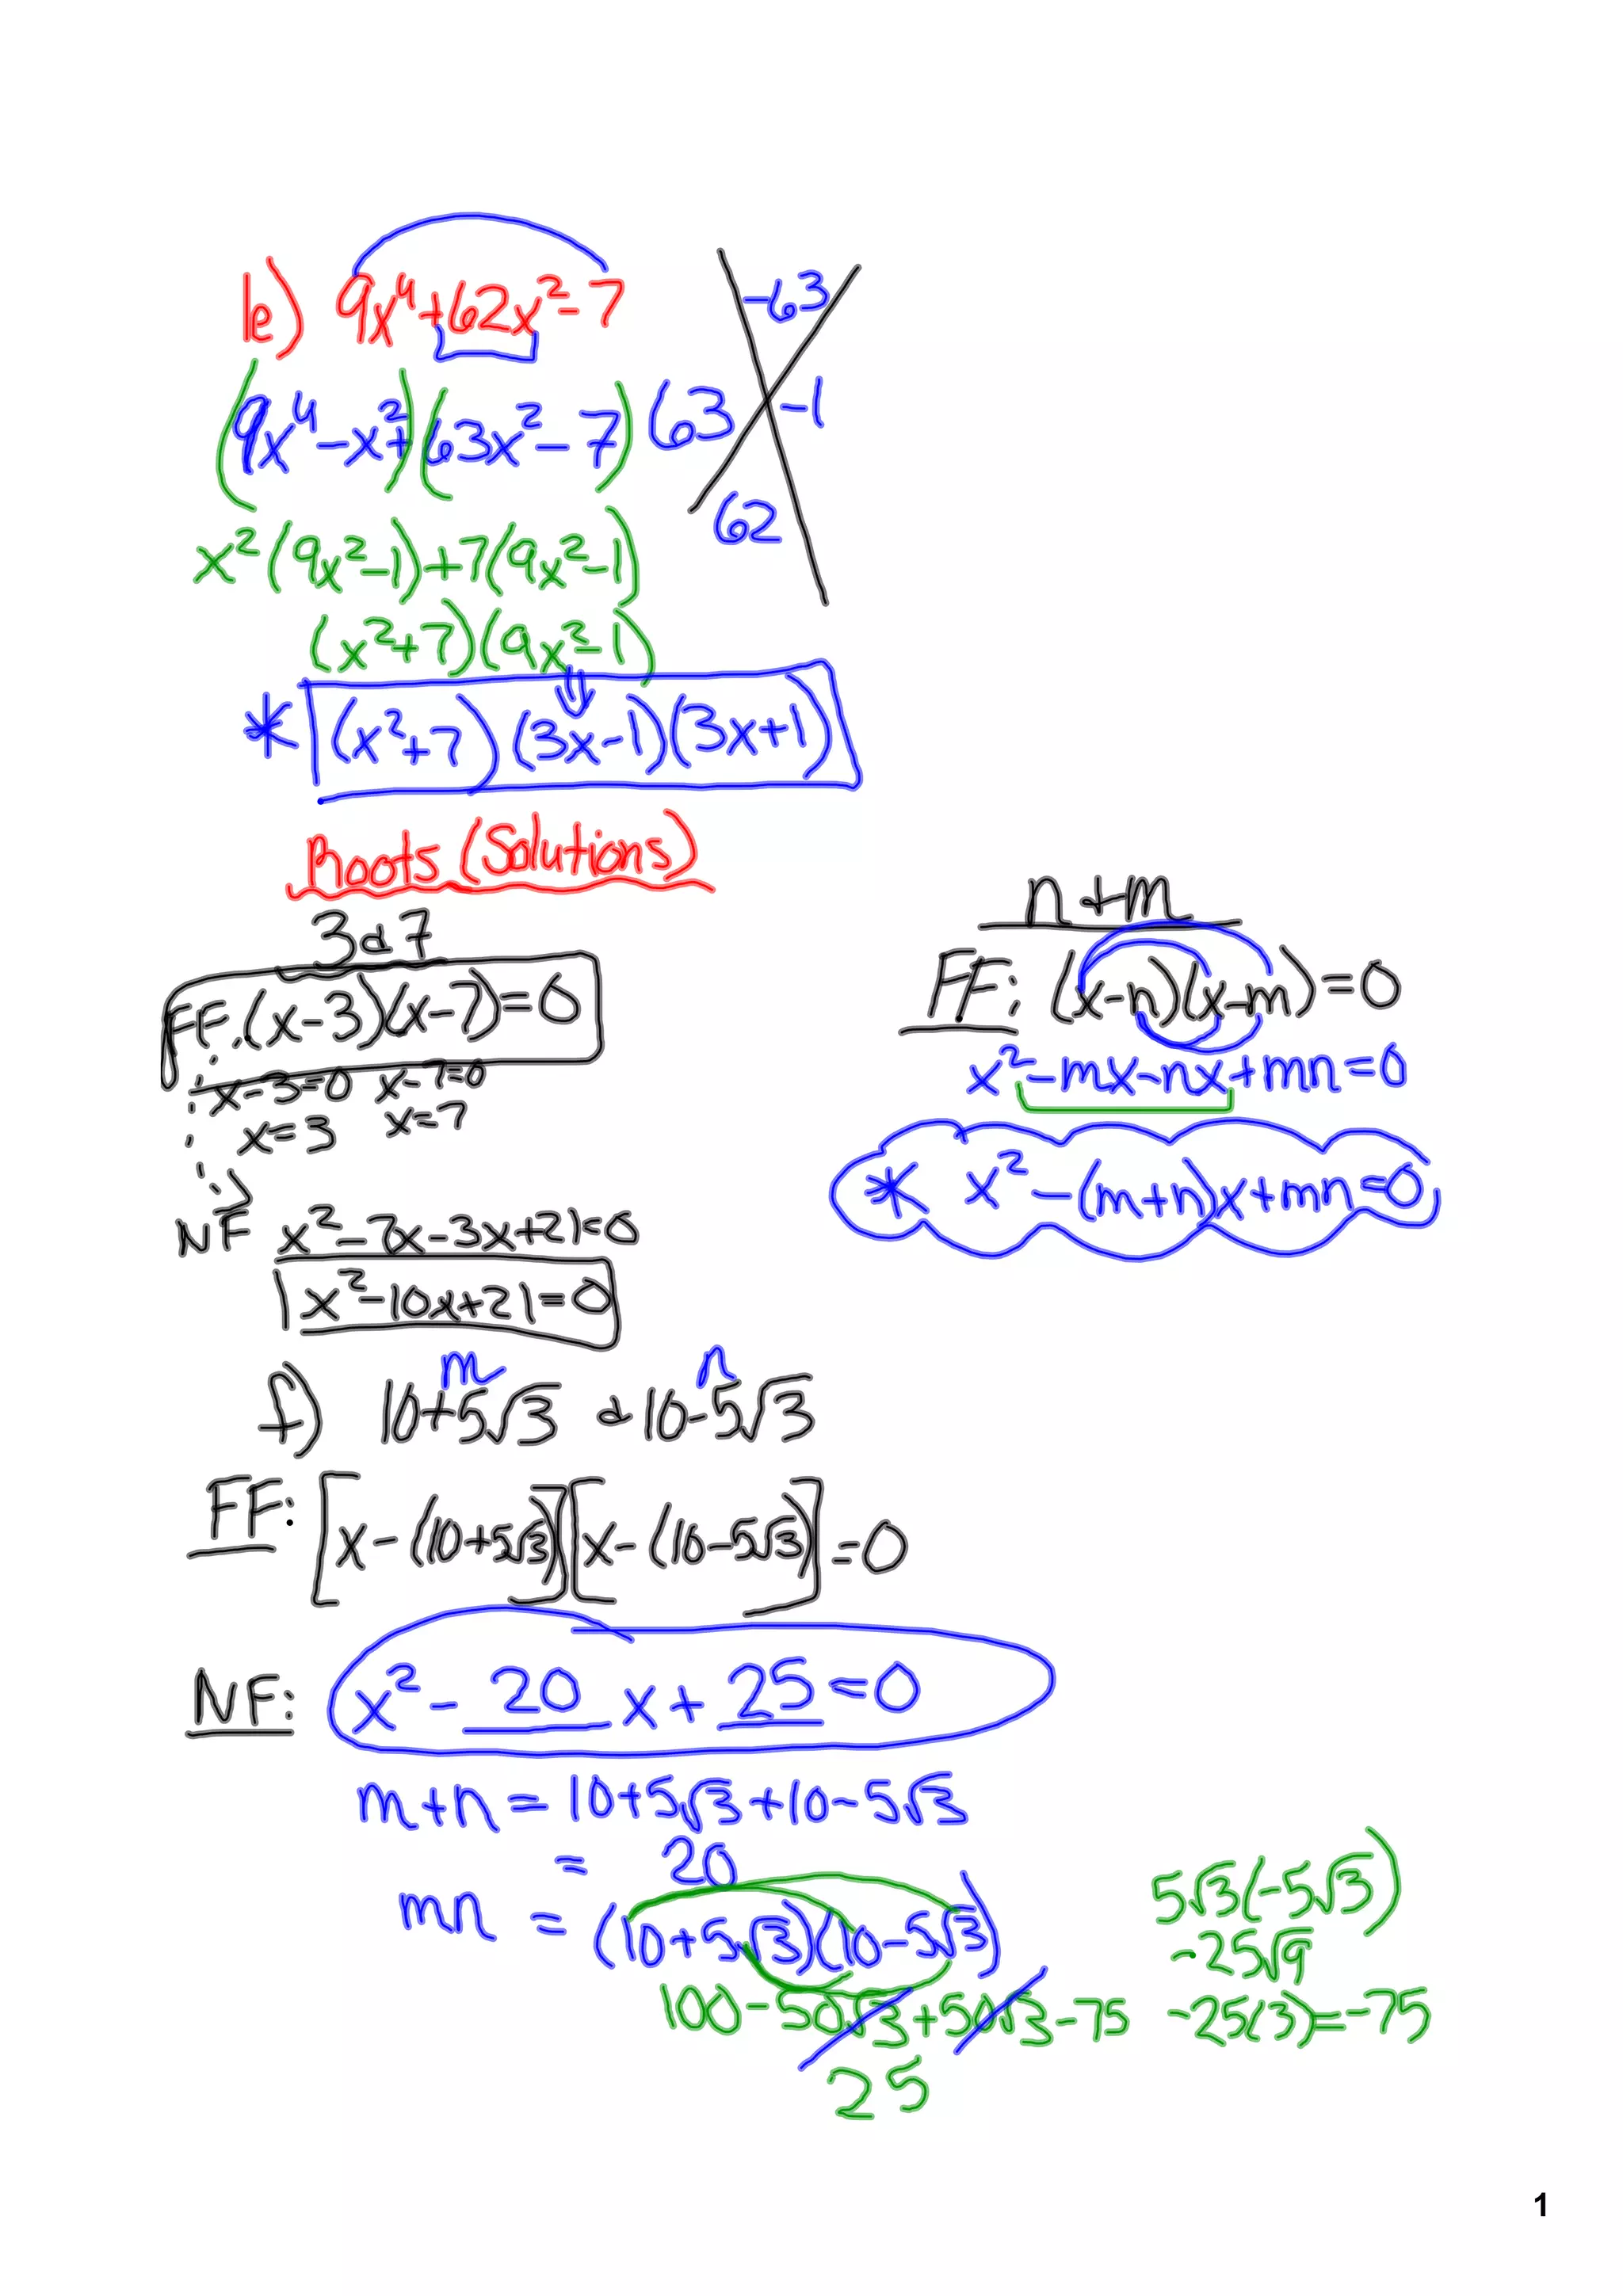 e) 9x⁴+62x²-7
-63
(9x⁴-x²)+(63x²-7) 63 -1
62
x²(9x²-1)+7(9x²-1)
(x²+7)(9x²-1)
* (x²+7)(3x-1)(3x+1)
Roots (Solutions)
3 & 7
FF: (x-3)(x-7)=0
x-3=0 x-7=0
x=3 x=7
NF x²-7x-3x+21=0
x²-10x+21=0
n+m
FF: (x-n)(x-m)=0
x²-mx-nx+mn=0
* x²-(m+n)x+mn=0
m n
f) 10+5√3 & 10-5√3
FF: [x-(10+5√3)][x-(10-5√3)]=0
NF: x²-20x+25=0
m+n=10+5√3+10-5√3
= 20
mn = (10+5√3)(10-5√3)
100-50√3+50√3-75
25
5√3(-5√3)
-25√9
-25(3)=-75
1